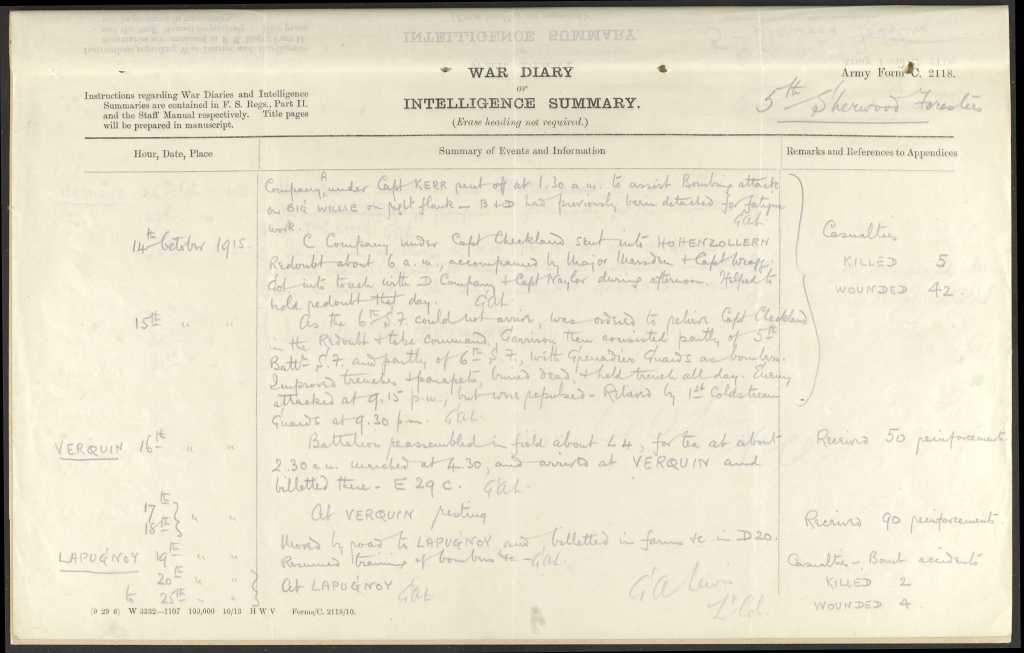 WAR DIARY
OR
INTELLIGENCE SUMMARY.
(Erase heading not required.)
Army Form C. 2118.
Instructions regarding War Diaries and Intelligence
Summaries are contained in F. S. Regs., Part II.
and the Staff Manual respectively. Title pages
will be prepared in manuscript.
5th Sherwood Foresters
Hour, Date, Place
Summary of Events and Information
Remarks and References to Appendices
Company A under Capt KERR sent off at 1.30 a.m. to assist Bombing attack
on BIG WILLIE on right flank - B & D had previously been detached for fatigue
work. GAL
14th October 1915.
C Company under Capt Checkland sent into HOHENZOLLERN
Redoubt about 6 a.m., accompanied by Major Marsden & Capt Wragg.
Got into touch with D Company & Capt Naylor during afternoon. Helped to
hold redoubt that day. GAL
Casualties
KILLED 5
WOUNDED 42.
15th " "
As the 6th S.F. could not arrive, was ordered to relieve Capt Checkland
in the Redoubt & take command. Garrison then consisted partly of 5th
Battn S.F. and partly of 6th S.F., with Grenadier Guards as bombers.
Improved trenches & parapets, buried dead, & held trench all day. Enemy
attacked at 9.15 p.m., but were repulsed - Relieved by 1st Coldstream
Guards at 9.30 p.m. GAL
VERQUIN 16th " "
Battalion reassembled in field about L4, for tea at about
2.30 a.m. marched at 4.30, and arrived at VERQUIN and
billetted there - E 29 c. GAL
Received 50 reinforcements
17th
18th } " "
At VERQUIN resting
Received 90 reinforcements.
LAPUGNOY 19th " "
Moved by road to LAPUGNOY and billetted in farms &c in D20.
Resumed training of bombers &c - GAL
Casualties - Bomb accidents
KILLED 2
WOUNDED 4.
20th " "
to 25th " "
At LAPUGNOY GAL
GA Lewis
Lt Col
(9 29 6) W 3332-1107 100,000 10/13 H W V Forms/C. 2118/10.